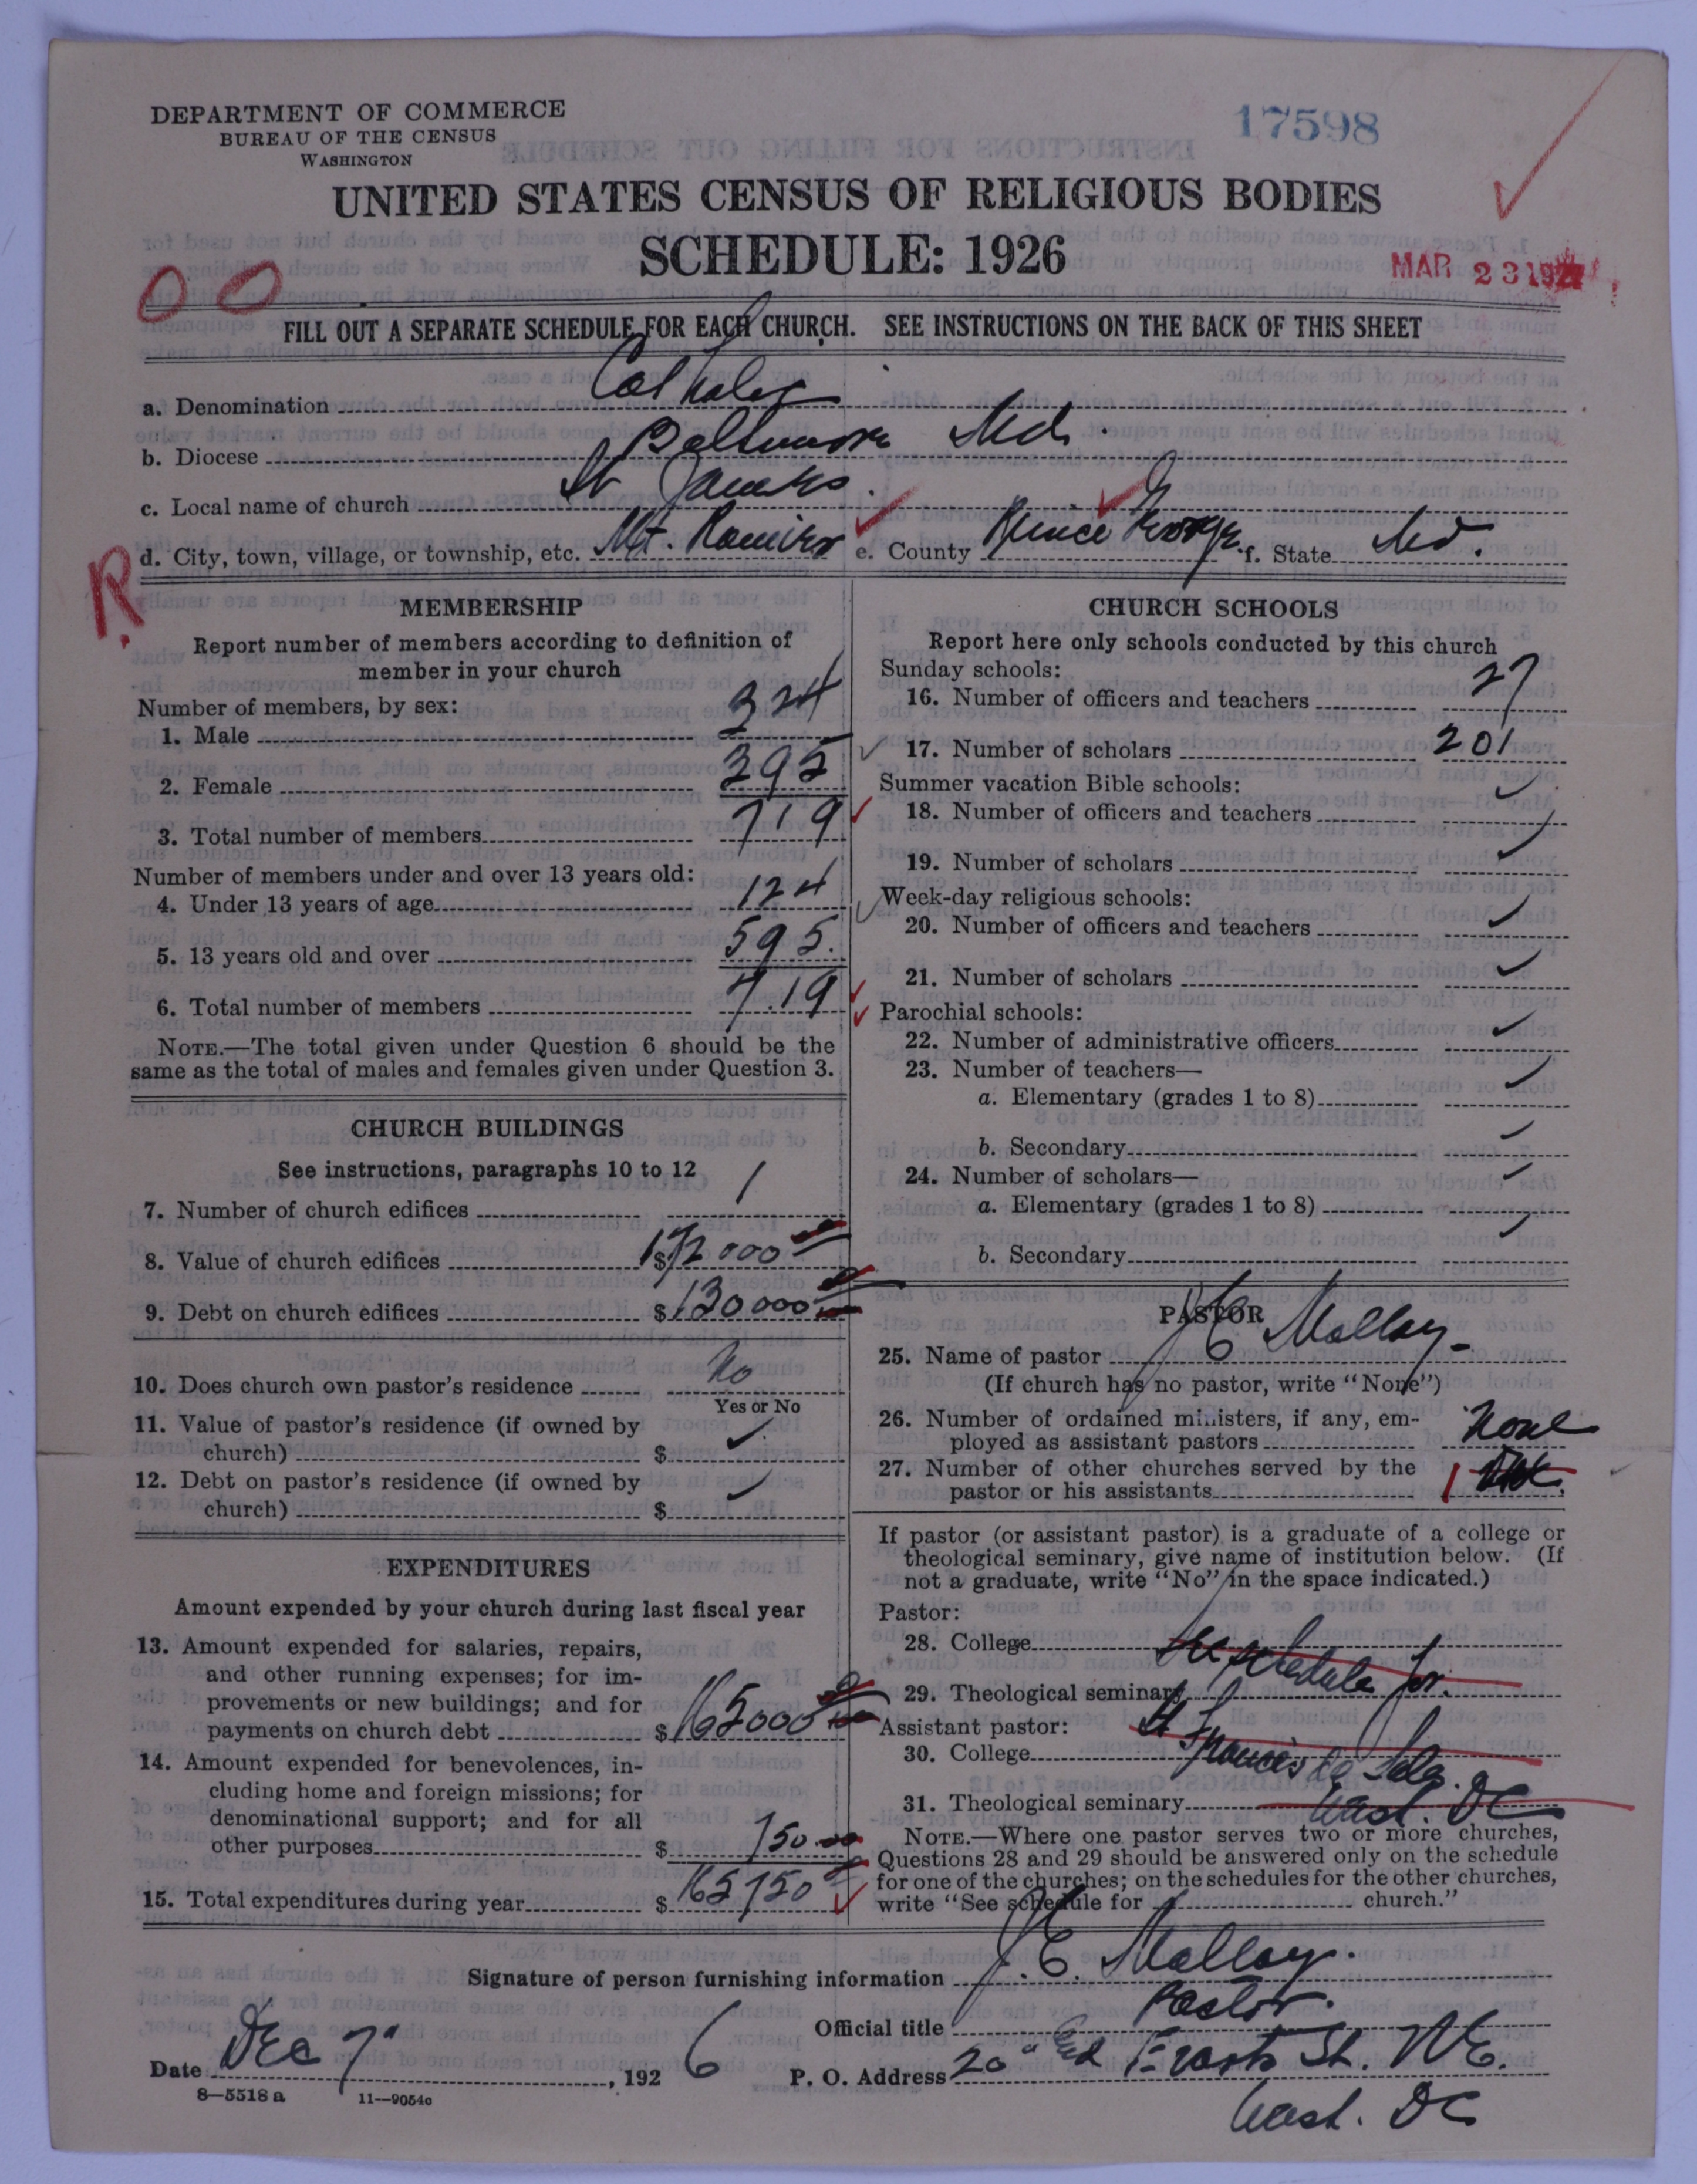 DEPARTMENT OF COMMERCE
BUREAU OF THE CENSUS
WASHINGTON
17598
UNITED STATES CENSUS OF RELIGIOUS BODIES
SCHEDULE: 1926
MAR 23 192
00
FILL OUT A SEPARATE SCHEDULE FOR EACH CHURCH. SEE INSTRUCTIONS ON THE BACK OF THIS SHEET
a. Denomination Catholic
b. Diocese Baltimore Md.
c. Local name of church St James.
d. City, town, village, or township, etc. Mt. Rainier e. County Prince George f. State Md.
R
MEMBERSHIP
Report number of members according to definition of
member in your church
Number of members, by sex:
1. Male 324
2. Female 395
3. Total number of members 719
Number of members under and over 13 years old:
4. Under 13 years of age 124
5. 13 years old and over 595.
6. Total number of members 719
NOTE.—The total given under Question 6 should be the
same as the total of males and females given under Question 3.
CHURCH BUILDINGS
See instructions, paragraphs 10 to 12
7. Number of church edifices 1
8. Value of church edifices $172000
9. Debt on church edifices $130000
10. Does church own pastor's residence No
Yes or No
11. Value of pastor's residence (if owned by
church) $ ✓
12. Debt on pastor's residence (if owned by
church) $ ✓
EXPENDITURES
Amount expended by your church during last fiscal year
13. Amount expended for salaries, repairs,
and other running expenses; for im-
provements or new buildings; and for
payments on church debt $165000
14. Amount expended for benevolences, in-
cluding home and foreign missions; for
denominational support; and for all
other purposes $ 150.00
15. Total expenditures during year $ 165150
CHURCH SCHOOLS
Report here only schools conducted by this church
Sunday schools:
16. Number of officers and teachers 27
17. Number of scholars 201
Summer vacation Bible schools:
18. Number of officers and teachers ✓
19. Number of scholars ✓
Week-day religious schools:
20. Number of officers and teachers ✓
21. Number of scholars ✓
Parochial schools:
22. Number of administrative officers ✓
23. Number of teachers—
a. Elementary (grades 1 to 8) ✓
b. Secondary ✓
24. Number of scholars—
a. Elementary (grades 1 to 8) ✓
b. Secondary ✓
PASTOR
25. Name of pastor J C Malloy
(If church has no pastor, write "None")
26. Number of ordained ministers, if any, em-
ployed as assistant pastors None
27. Number of other churches served by the
pastor or his assistants 1
If pastor (or assistant pastor) is a graduate of a college or
theological seminary, give name of institution below. (If
not a graduate, write "No" in the space indicated.)
Pastor:
28. College See schedule for
29. Theological seminary
Assistant pastor: St Francis de Sales.
30. College
31. Theological seminary Wash. DC
NOTE.—Where one pastor serves two or more churches,
Questions 28 and 29 should be answered only on the schedule
for one of the churches; on the schedules for the other churches,
write "See schedule for church."
Signature of person furnishing information J. C. Malloy.
Official title Pastor.
Date Dec 7", 1926
P. O. Address 20" St. N E.
Wash. DC
8—5518 a 11—9054c